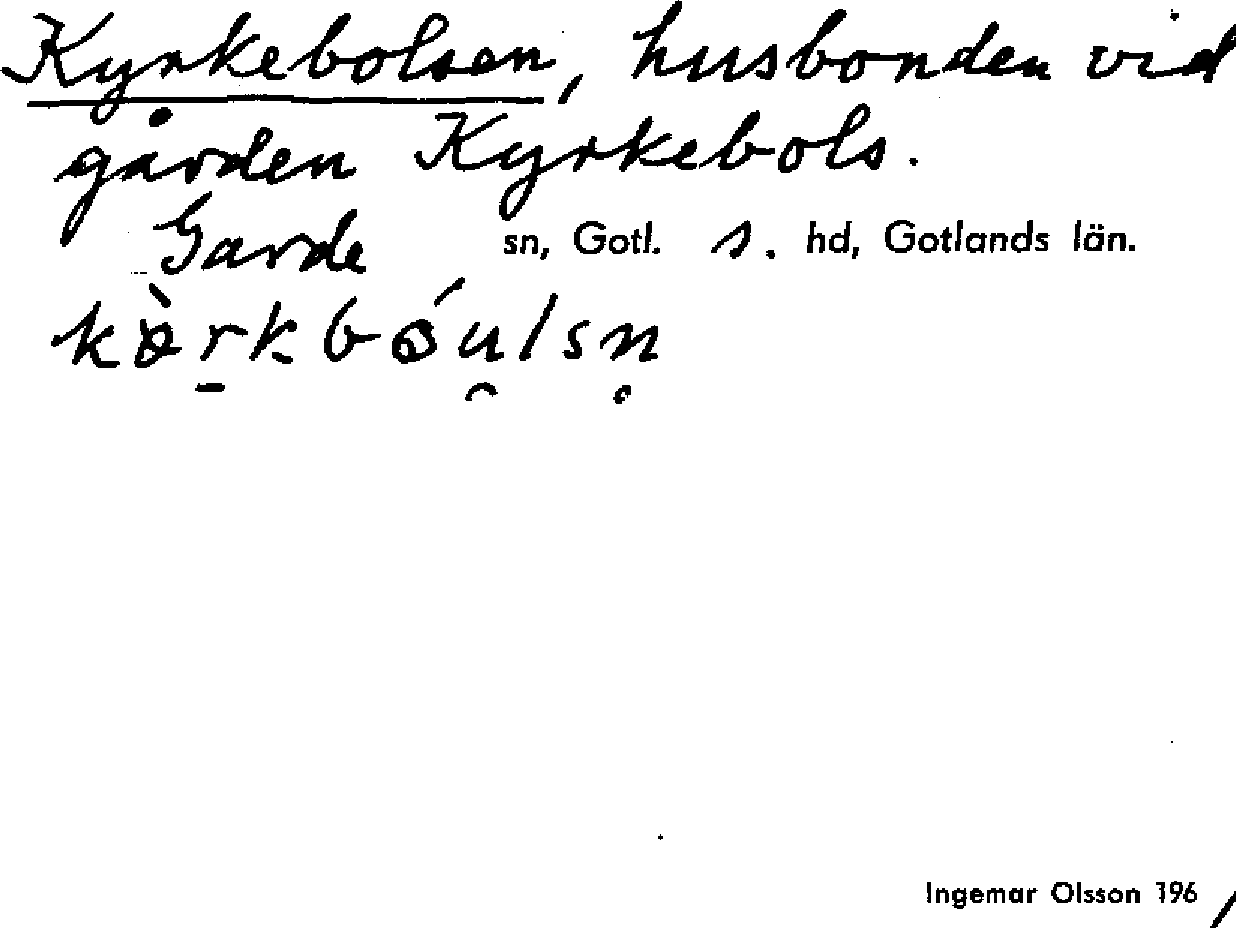 Kyrkebolsen, husbonden vid
gården Kyrkebols.
Garde sn, Gotl. s. hd, Gotlands län.
Ingemar Olsson 196